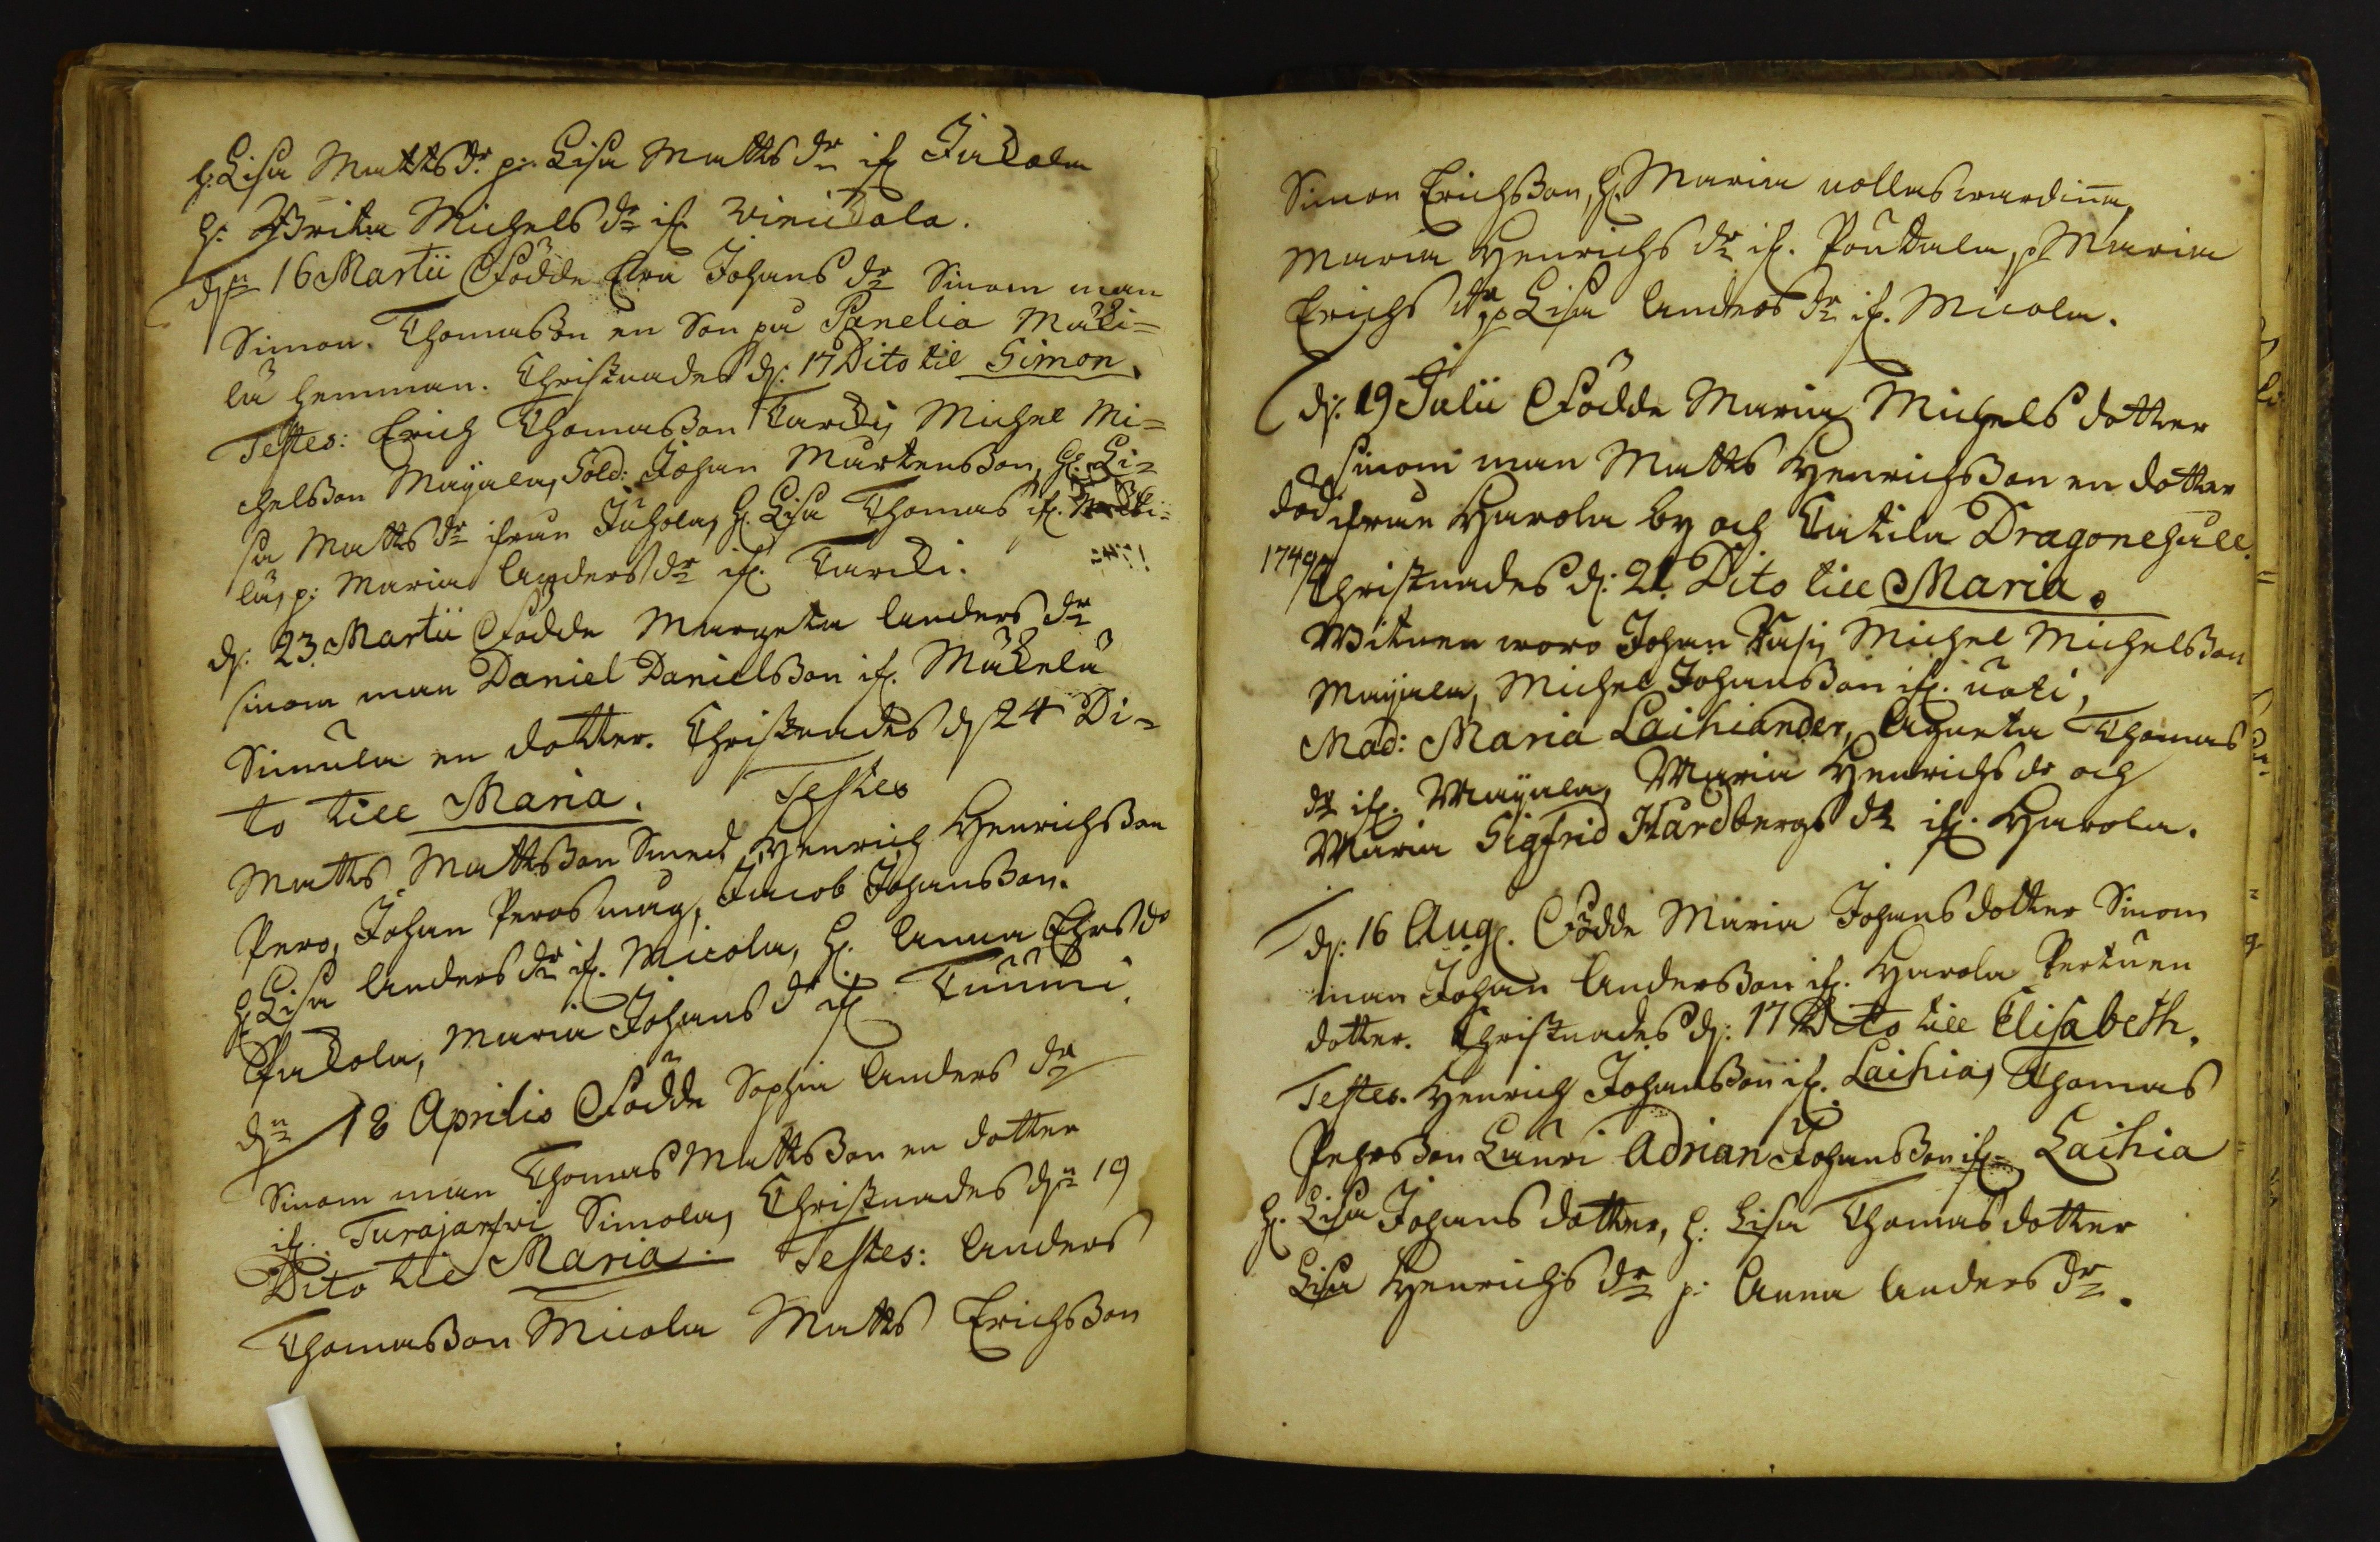 h. Lisa Matts dr. p. Lisa Matts dr if. Jakola
h. Brita Michels dr if. Vinickala.
dn 16 Martii Födde Eva Johans dr Sinom man
Simon Thomasson en Son på Panelia Mäki=
lä hemman. Christnades d. 17 Dito til Simon.
Testes: Erich Thomasson Tarcki, Michel Mi=
chelsson Mayala, Sold: Johan Mårtensson, H. Li=
sa Matts dr ifrån Juhola, h. Lisa Thomas if. Mäki=
lä, p: Maria Anders dr if. Tarcki.
d. 23 Martii Födde Margeta Anders dr
sinom man Daniel Danielsson if. Mäkelä
Simula en dotter. Christnades d 24 Di=
to till Maria. Testes
Matts Mattsson Smed, Henrich Henrichsson
Pero, Johan Pers mag, Jacob Johansson.
h. Lisa Anders dr if. Micola, h. Anna Ehrs dr
Jakola, Maria Johans dr if Tuumi.
dn 18 Aprilis Födde Sophia Anders dr
Sinom man Thomas Mattsson en dotter
if. Turajarfvi Simola, Christnades dn 19
Dito til Maria. Testes: Anders
Thomasson Micola Matts Erichsson
Simon Erichsson, h. Maria
Maria Henrichs dr if. Poukala, p Maria
Erichs dr, p Lisa Anders dr if. Micola.
d. 19 Julii Födde Maria Michels dotter
sinom man Matts Henrichsson en dotter
död ifrån Harola by och Catila Dragonehåll.
1749
Christnades d. 21. Dito till Maria.
Witnen woro Johan Vasi, Michel Michelsson
Mayala, Michel Johansson if. Uoti,
Mad: Maria Laihiander, Agneta Thomas
dr if. Mayala, Maria Henrichs dr och
Maria Sigfrid Hardbergs dr if. Harola.
d. 16 Aug. Födde Maria Johans dotter Sinom
man Johan Andersson if. Harola Pertu en
dotter. Christnades d. 17 Dito till Elisabeth.
Testes. Henrich Johansson if. Laihia, Thomas
Pehrsson Lauri Adrian Johansson if. Laihia
h. Lisa Johans dotter, h. Lisa Thomas dotter
Lisa Henrichs dr p. Anna Anders dr.